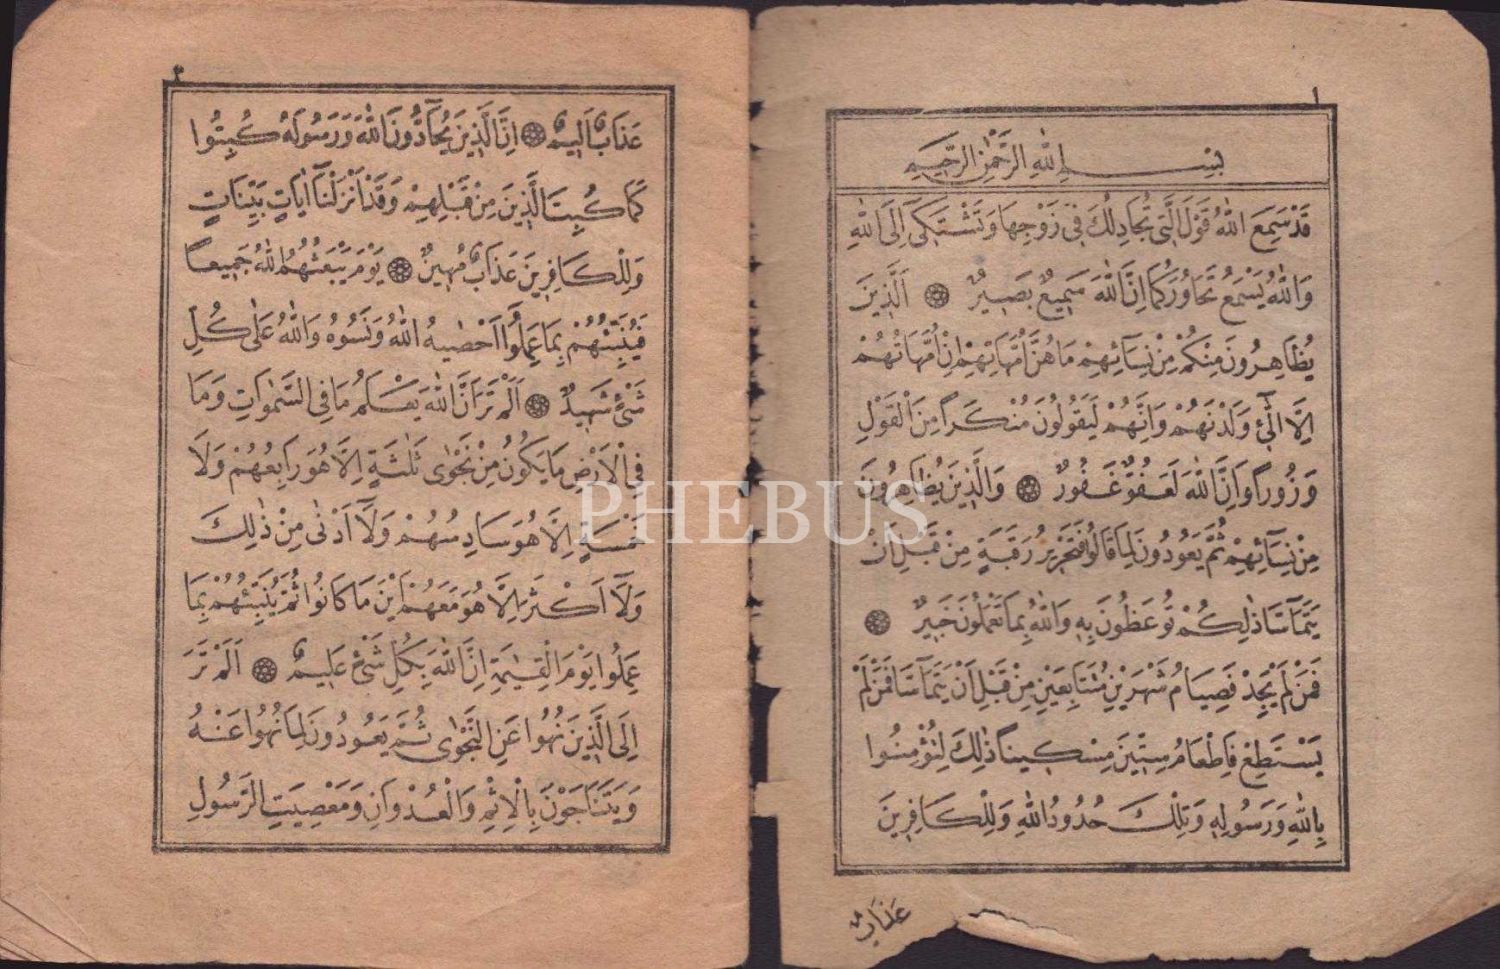 ١
بِسْمِ اللّٰهِ الرَّحْمٰنِ الرَّحِيمِ
قَدْ سَمِعَ اللّٰهُ قَوْلَ الَّتِى تُجَادِلُكَ فِى زَوْجِهَا وَتَشْتَكِى اِلَى اللّٰهِ
وَاللّٰهُ يَسْمَعُ تَحَاوُرَكُمَا اِنَّ اللّٰهَ سَمِيعٌ بَصِيرٌ ۞ اَلَّذِينَ
يُظَاهِرُونَ مِنْكُمْ مِنْ نِسَآئِهِمْ مَا هُنَّ اُمَّهَاتِهِمْ اِنْ اُمَّهَاتُهُمْ
اِلَّا الّٰٓئِ وَلَدْنَهُمْ وَاِنَّهُمْ لَيَقُولُونَ مُنْكَرًا مِنَ الْقَوْلِ
وَزُورًا وَاِنَّ اللّٰهَ لَعَفُوٌّ غَفُورٌ ۞ وَالَّذِينَ يُظَاهِرُونَ
مِنْ نِسَآئِهِمْ ثُمَّ يَعُودُونَ لِمَا قَالُوا فَتَحْرِيرُ رَقَبَةٍ مِنْ قَبْلِ اَنْ
يَتَمَآسَّا ذٰلِكُمْ تُوعَظُونَ بِهِ وَاللّٰهُ بِمَا تَعْمَلُونَ خَبِيرٌ ۞
فَمَنْ لَمْ يَجِدْ فَصِيَامُ شَهْرَيْنِ مُتَتَابِعَيْنِ مِنْ قَبْلِ اَنْ يَتَمَآسَّا فَمَنْ لَمْ
يَسْتَطِعْ فَاِطْعَامُ سِتِّينَ مِسْكِينًا ذٰلِكَ لِتُؤْمِنُوا
بِاللّٰهِ وَرَسُولِهِ وَتِلْكَ حُدُودُ اللّٰهِ وَلِلْكَافِرِينَ
عَذَابٌ
٢
عَذَابٌ اَلِيمٌ ۞ اِنَّ الَّذِينَ يُحَآدُّونَ اللّٰهَ وَرَسُولَهُ كُبِتُوا
كَمَا كُبِتَ الَّذِينَ مِنْ قَبْلِهِمْ وَقَدْ اَنْزَلْنَآ اٰيَاتٍ بَيِّنَاتٍ
وَلِلْكَافِرِينَ عَذَابٌ مُهِينٌ ۞ يَوْمَ يَبْعَثُهُمُ اللّٰهُ جَمِيعًا
فَيُنَبِّئُهُمْ بِمَا عَمِلُوا اَحْصٰيهُ اللّٰهُ وَنَسُوهُ وَاللّٰهُ عَلٰى كُلِّ
شَىْءٍ شَهِيدٌ ۞ اَلَمْ تَرَ اَنَّ اللّٰهَ يَعْلَمُ مَا فِى السَّمٰوَاتِ وَمَا
فِى الْاَرْضِ مَا يَكُونُ مِنْ نَجْوٰى ثَلٰثَةٍ اِلَّا هُوَ رَابِعُهُمْ وَلَا
خَمْسَةٍ اِلَّا هُوَ سَادِسُهُمْ وَلَآ اَدْنٰى مِنْ ذٰلِكَ
وَلَآ اَكْثَرَ اِلَّا هُوَ مَعَهُمْ اَيْنَ مَا كَانُوا ثُمَّ يُنَبِّئُهُمْ بِمَا
عَمِلُوا يَوْمَ الْقِيٰمَةِ اِنَّ اللّٰهَ بِكُلِّ شَىْءٍ عَلِيمٌ ۞ اَلَمْ تَرَ
اِلَى الَّذِينَ نُهُوا عَنِ النَّجْوٰى ثُمَّ يَعُودُونَ لِمَا نُهُوا عَنْهُ
وَيَتَنَاجَوْنَ بِالْاِثْمِ وَالْعُدْوَانِ وَمَعْصِيَتِ الرَّسُولِ
PHEBUS